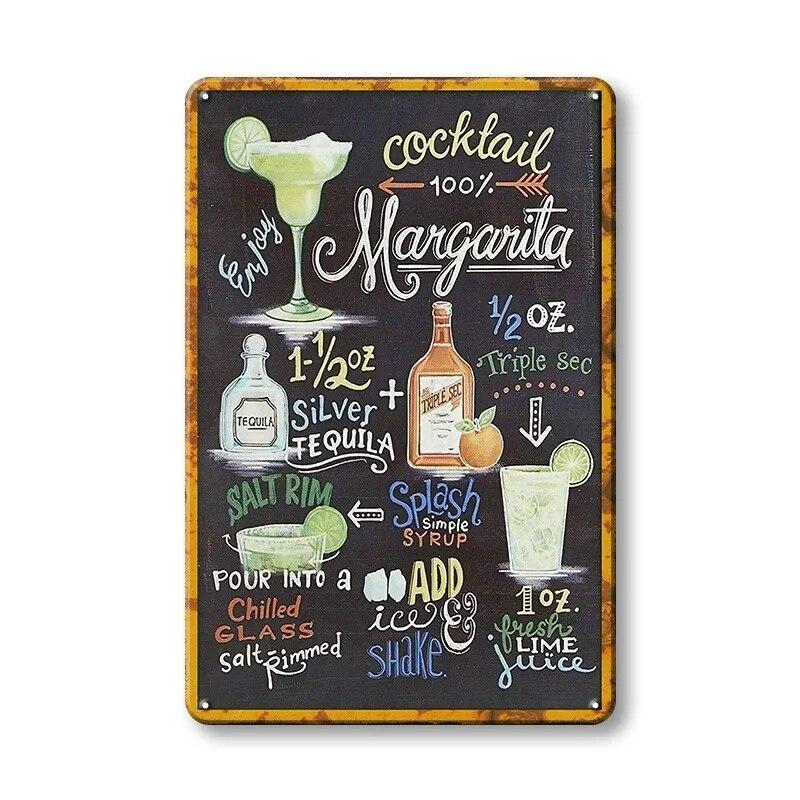 cocktail
100%
Margarita
Enjoy
1-1/2 oz
Silver
TEQUILA
TEQUILA
+
TRIPLE SEC
1/2 oz.
Triple sec
SALT RIM
Splash
Simple
SYRUP
POUR INTO a
Chilled
GLASS
salt-Rimmed
ADD
ice &
SHAKE.
1 oz.
fresh
LIME
juice